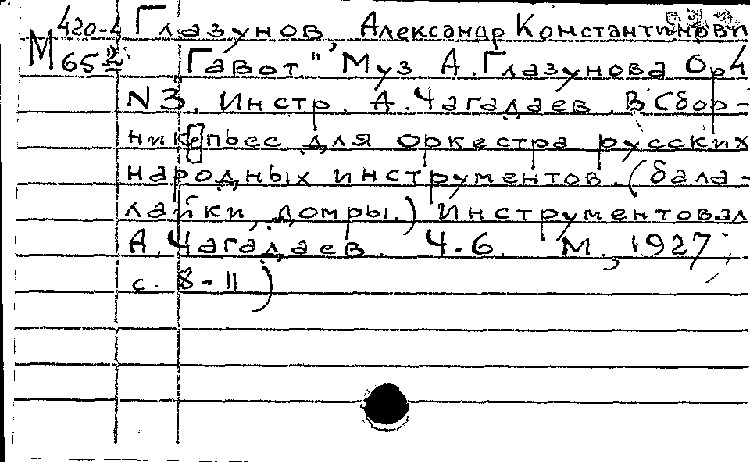 420-4 Глазунов, Александр Константинович
М 65 "Гавот" Муз А. Глазунова Ор 4
N 3. Инстр. А. Чагадаев. В Сбор-
нике пьес для оркестра русских
народных инструментов. (бала-
лайки, домры.) Инструментовал
А. Чагадаев. Ч. 6. М., 1927,
с. 8-11)